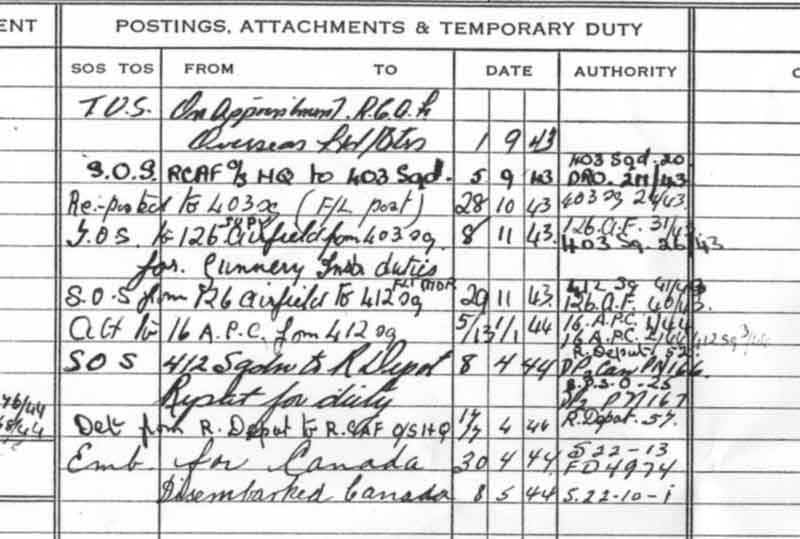 ENT POSTINGS, ATTACHMENTS & TEMPORARY DUTY
SOS TOS FROM TO DATE AUTHORITY
T.O.S. On Appointment. R.C.A.F.
Overseas 1 9 43
S.O.S. RCAF o/s HQ to 403 Sqd. 5 9 43 403 Sqd. 20 DRO. 211/43
Re-posted to 403 sq (F/L post) 28 10 43 403 sq 24/43
T.O.S. to 126 Airfield from 403 sq. 8 11 43. 126.A.F. 31/43 403 Sq. 26/43
for. Gunnery Instr duties
S.O.S from 126 airfield to 412 sq 29 11 43. 412 Sq 41/43 126.A.F. 40/43.
Att to 16 A.P.C. from 412 sq 5/1 44 16.A.P.C. 1/44 16 A.P.C. 2/44 412 Sq
SOS 412 Sqdn to R Depot 8 4 44 R. Depot 52. PN166.
Repat for duty PN167
76/44
Det from R. Depot to R.CAF O/S H Q 17/4 4 44 R.Depot. 57.
Emb. for Canada 30 4 44 S22-13 FD4974
Disembarked Canada 8 5 44 S.22-10-1